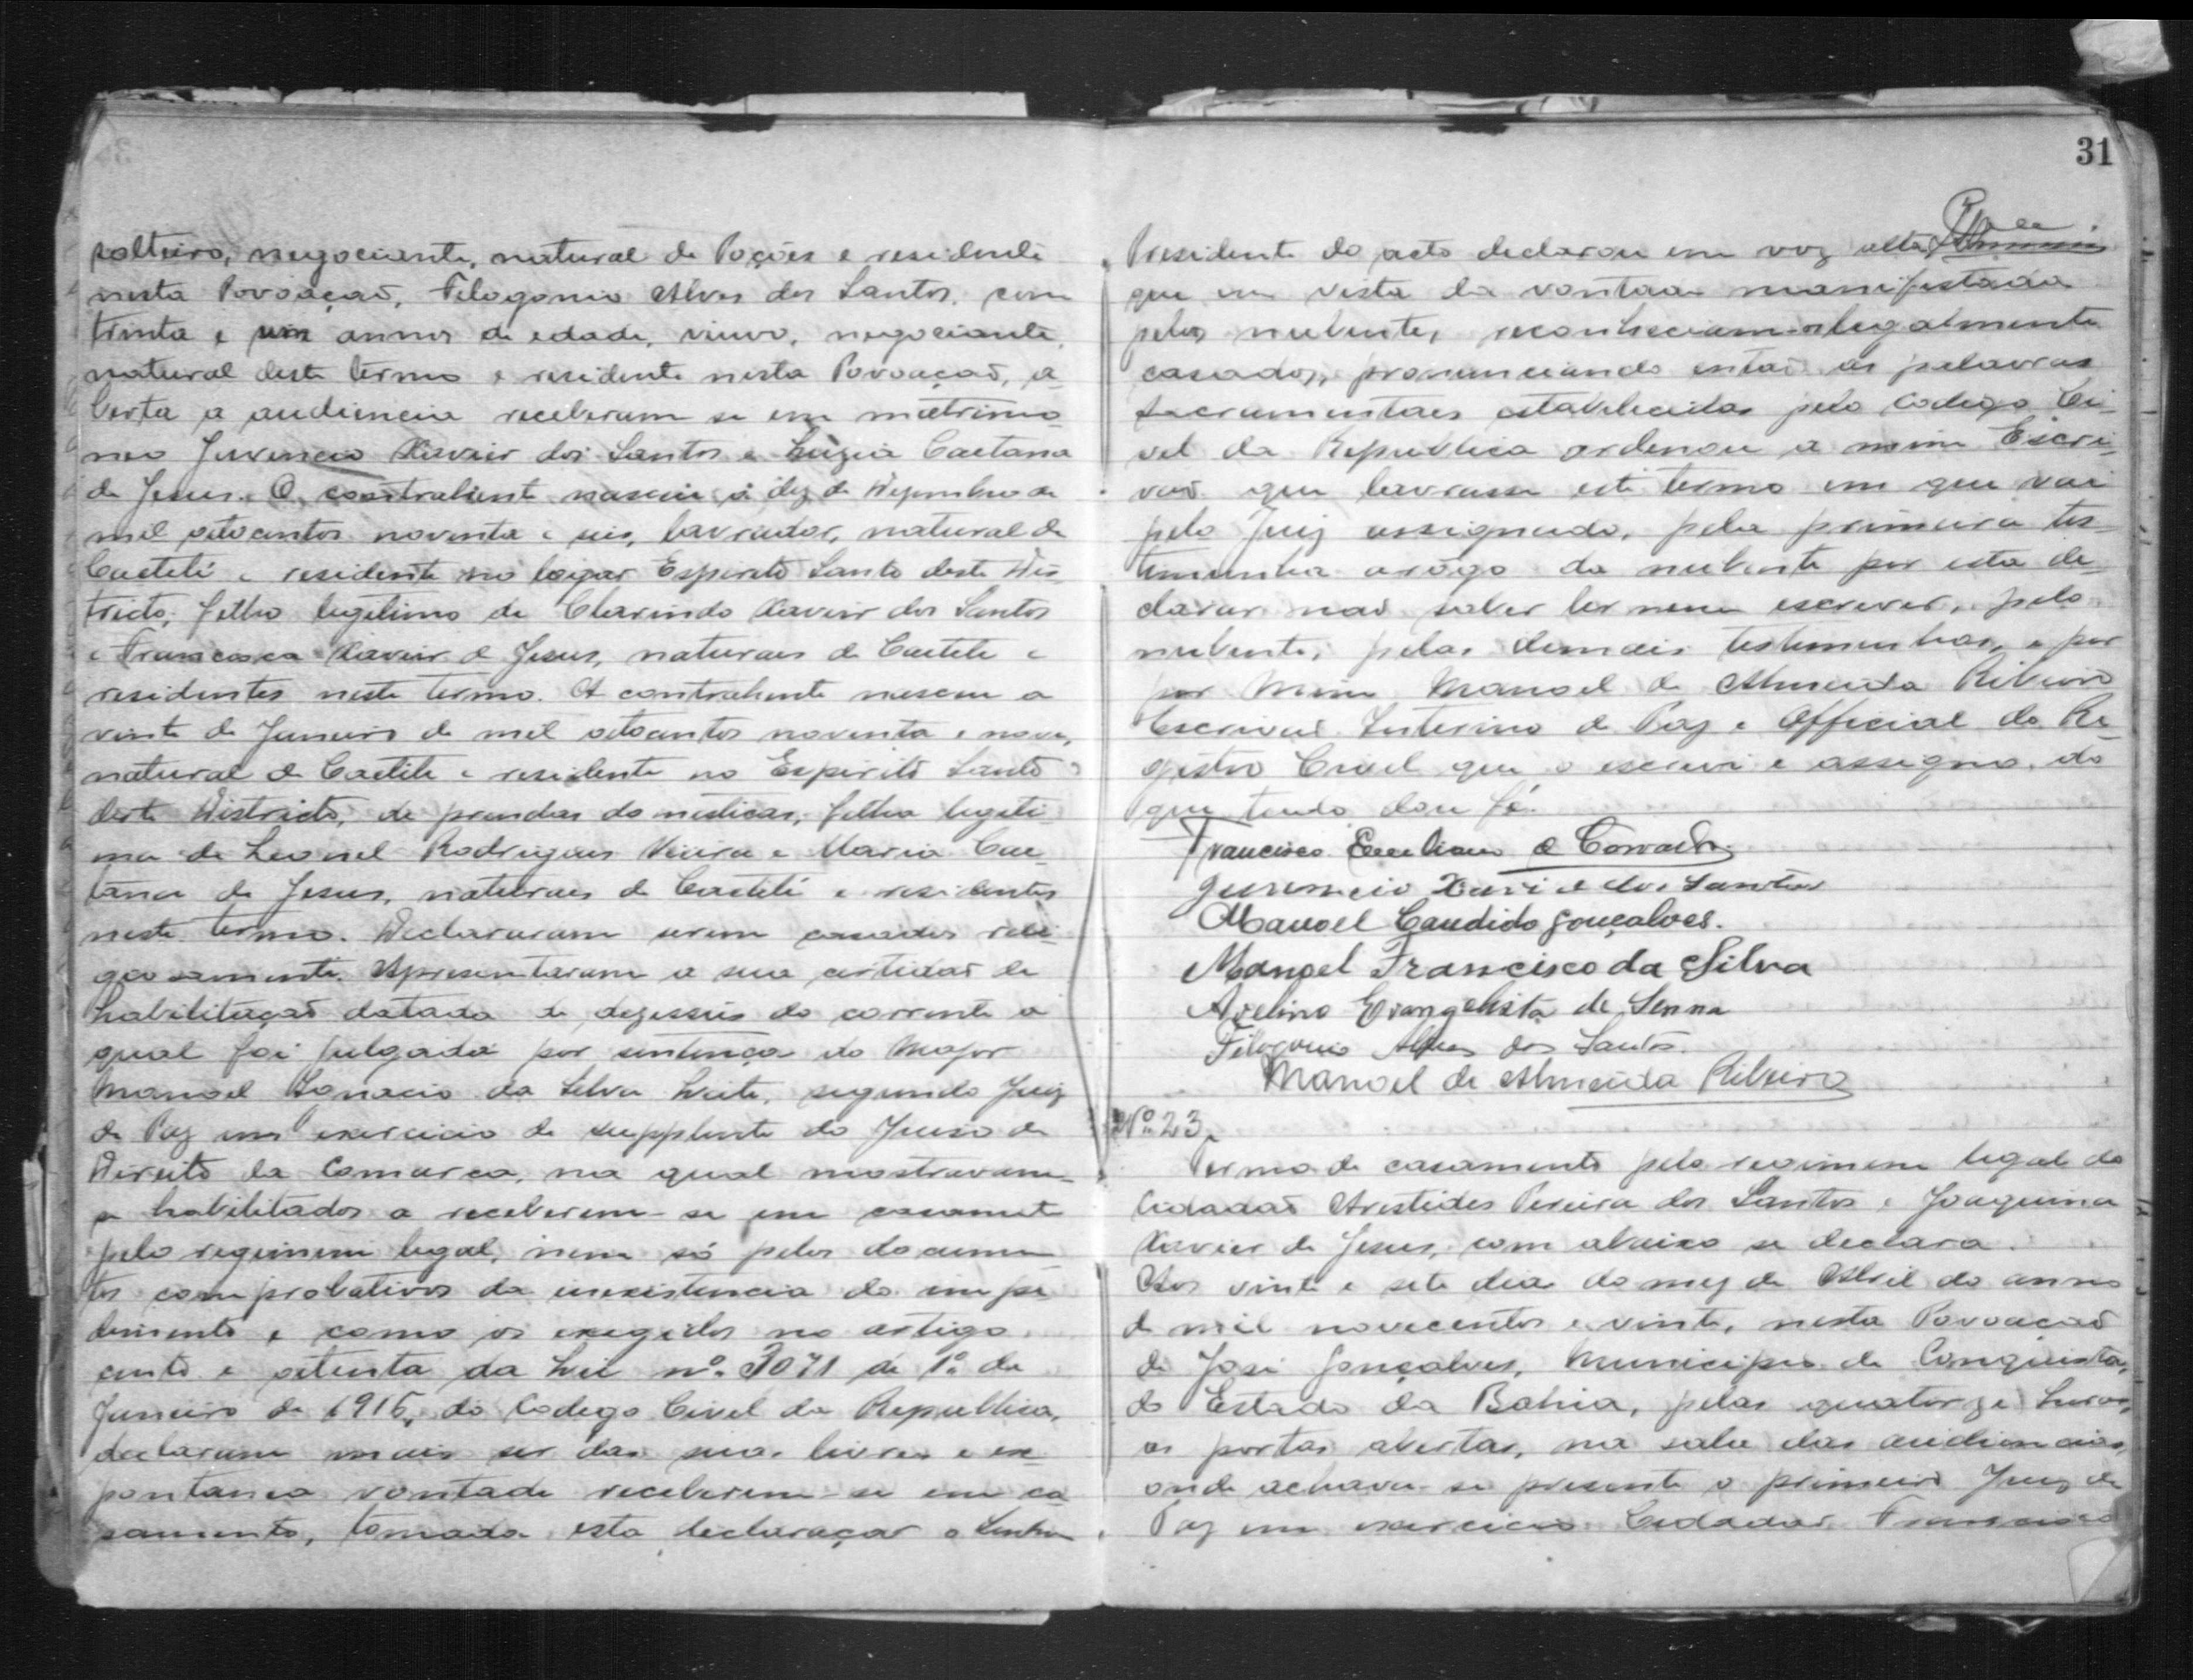 solteiro, negociante, natural de Poções e residente
nesta Povoação, Filogonio Alves dos Santos, com
trinta e um annos de edade, viuvo, negociante,
natural deste termo e residente nesta Povoação, a-
berta a audiencia receberam se em matrimo-
nio Juvencio Xavier dos Santos e Luzia Caetana
de Jesus. O contrahente nasceu á dez de Dezembro de
mil oitocentos noventa e seis, lavrador, natural de
Caeteté e residente no logar Espirito Santo deste Dis-
tricto, filho legitimo de Clarindo Xavier dos Santos
e Francisca Xavier de Jesus, naturaes de Caeteté e
residentes neste termo. A contrahente nasceu a
vinte de Janeiro de mil oitocentos noventa e nove,
natural de Caeteté e residente no Espirito Santo
deste Districto, de prendas domesticas, filha legiti-
ma de Leonel Rodrigues Vieira e Maria Cae-
tana de Jesus, naturaes de Caeteté e residentes
neste termo. Declararam serem casados reli-
giosamente. Apresentaram a sua certidaõ de
habilitaçaõ datada de dezesseis do corrente a
qual foi julgada por sentença do Major
Manoel Ignacio da Silva Leite, segundo Juiz
de Paz em exercicio de supplente do Juizo de
Direito da Comarca, na qual mostravam-
se habilitados a receberem-se em casamento
pelo regimem legal, nem só pelos documen-
tos comprobativos da inexistencia do impe-
dimento e como os exegidos no artigo
cento e oitenta da Lei nº. 3071 de 1º. de
Janeiro de 1916, do Codego Civel da Republica,
declaram mais ser das suas livres e es-
pontanea vontade receberem-se em ca-
samento, tomada esta declaraçaõ o Senhor
31
Presidente do acto declarou em voz alta
que em vista da vontade manifestada
pelos nubentes, reconheciam-os legalmente
casados, pronunciando entaõ as palavras
sacramentaes estabelecidas pelo Codego Ci-
vel da Republica ordenou a mim Escri-
vaõ que lavrasse este termo em que vai
pelo Juiz assignado, pela primeira tes-
temunha arôgo da nubente por esta de-
clarar naõ saber ler nem escrever, pelo
nubente, pelas demais testemunhas, e por
por mim Manoel de Almeida Ribeiro
Escrivaõ Interino de Paz e Official do Re-
gistro Civel que o escrevi e assigno, do
que tudo dou fé.
Francisco
Juvencio Xavie dos Santos
Manoel Candido Gonçalves.
Manoel Francisco da Silva
Avelino Evangelista de Senna
Filogonio Alves dos Santos.
Manoel de Almeida Ribeiro
Nº 23.
Termo de casamento pelo regimem legal do
Cidadaõ Aristides Pereira dos Santos e Joaquina
Xavier de Jesus, com abaixo se declara.
Aos vinte e sete dias do mez de Abril do anno
de mil novecentos e vinte, nesta Povoaçaõ
de José Gonçalves, Municipio de Conquista,
do Estado da Bahia, pelas quatorze horas,
as portas abertas, na sala das audiencias,
onde achava-se presente o primeiro Juiz de
Paz em exercicio Cidadaõ Francisco